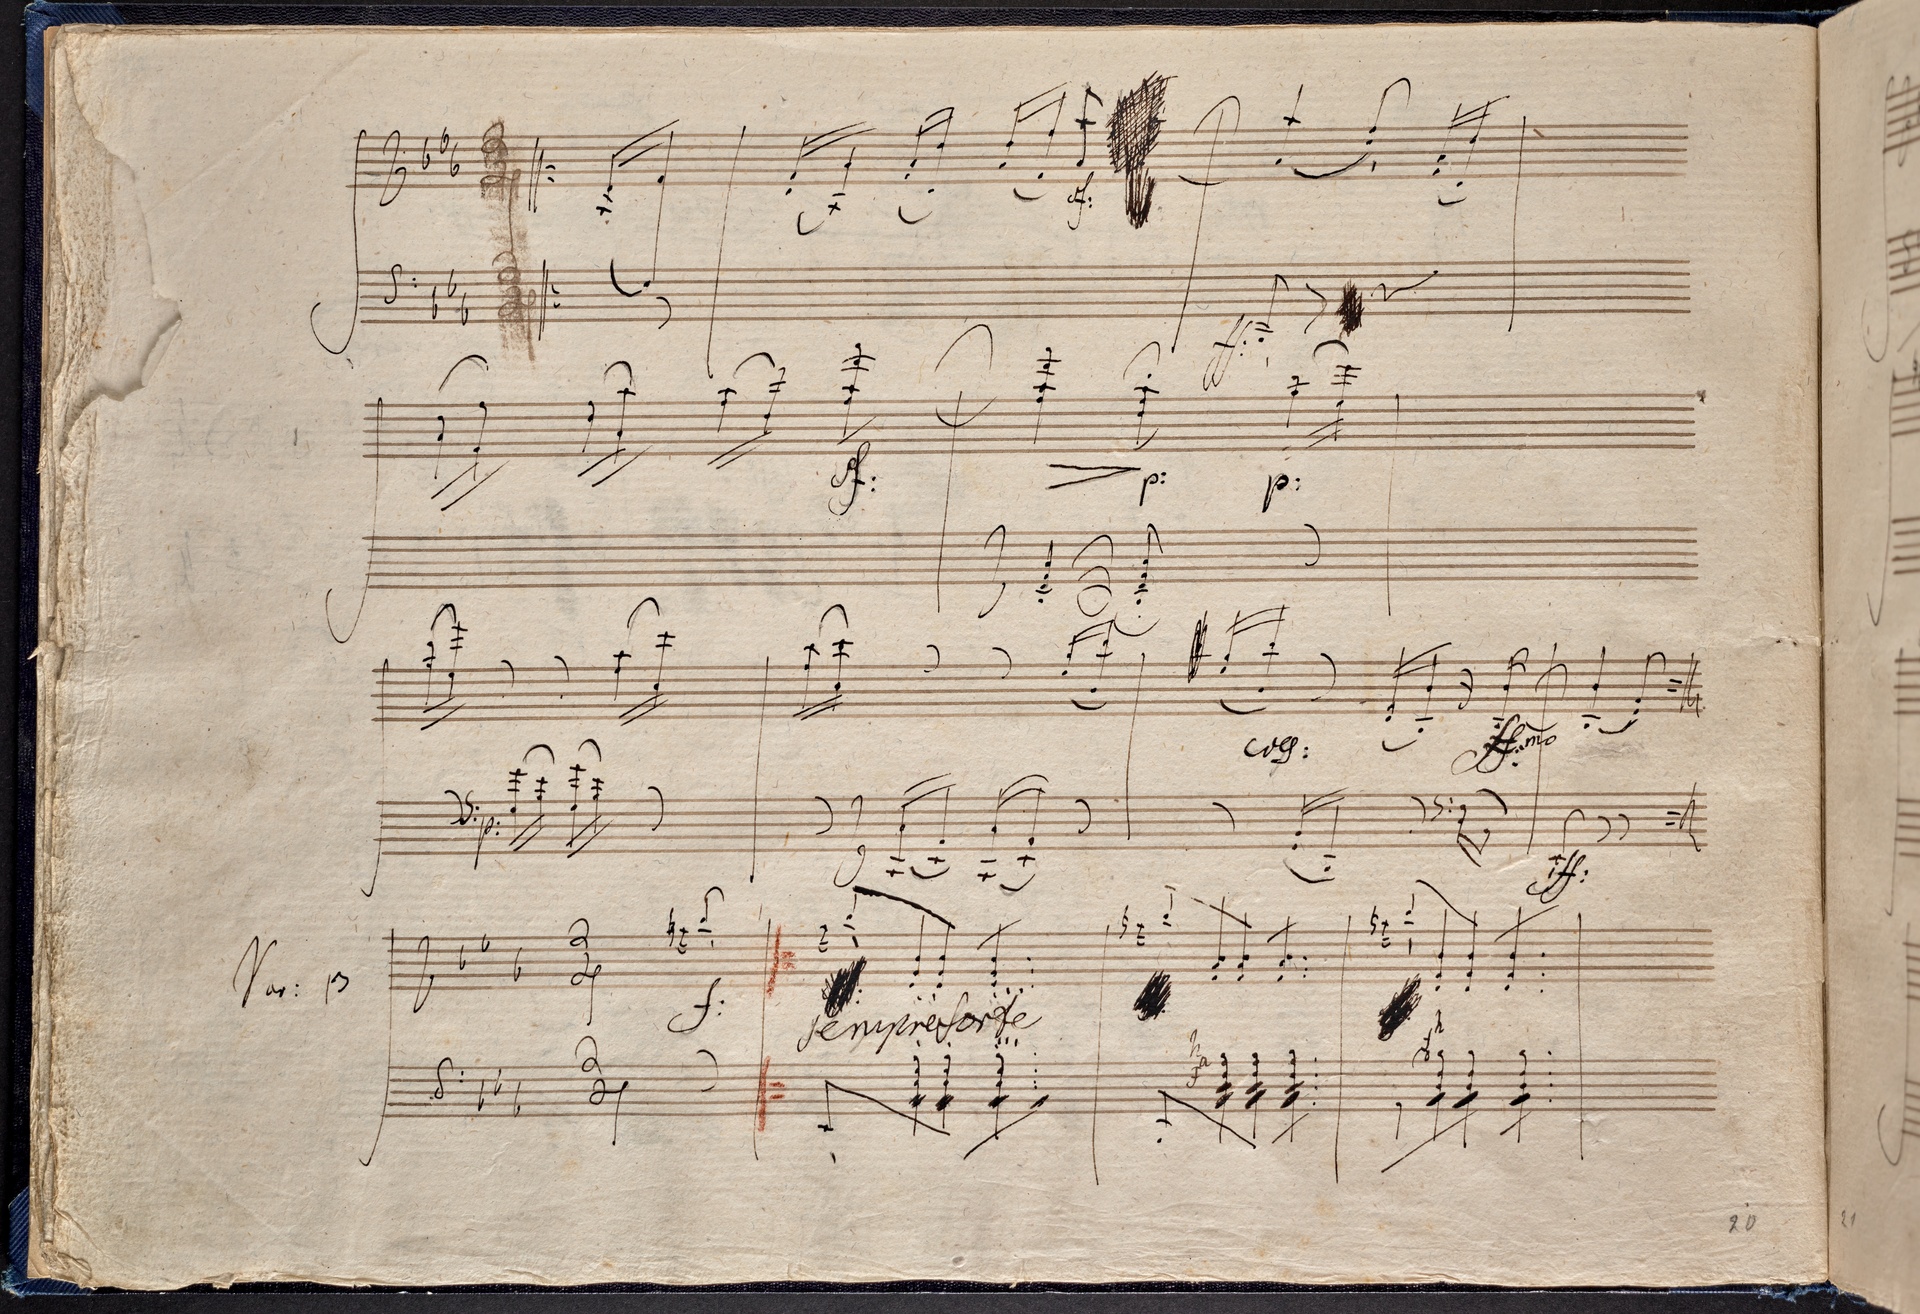 sf:
ff:
sf: p: p:
cresc:
ffmo
p:
ff:
Var: 13
f:
sempre forte
20
21